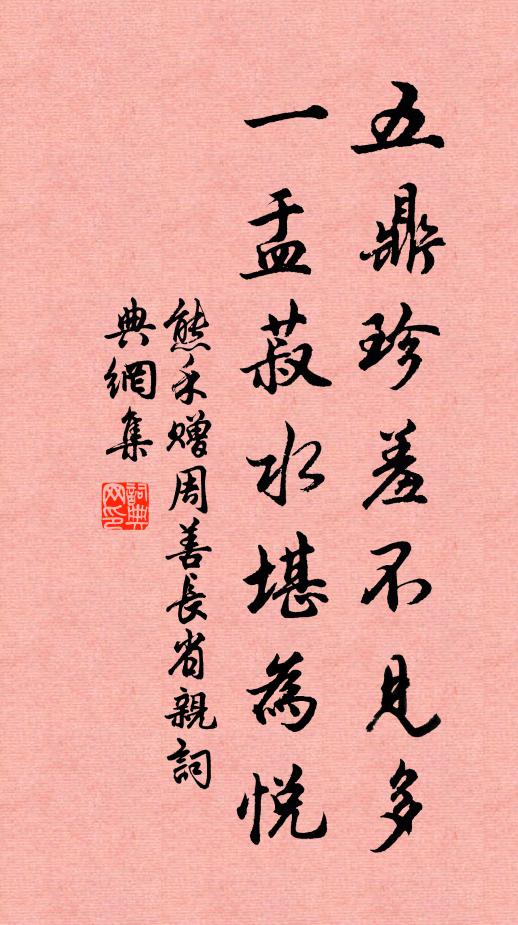 五鼎珍羞不見多
一盂菽水堪為悅
熊禾赠周善長省親詞
典網集
詞典
网印